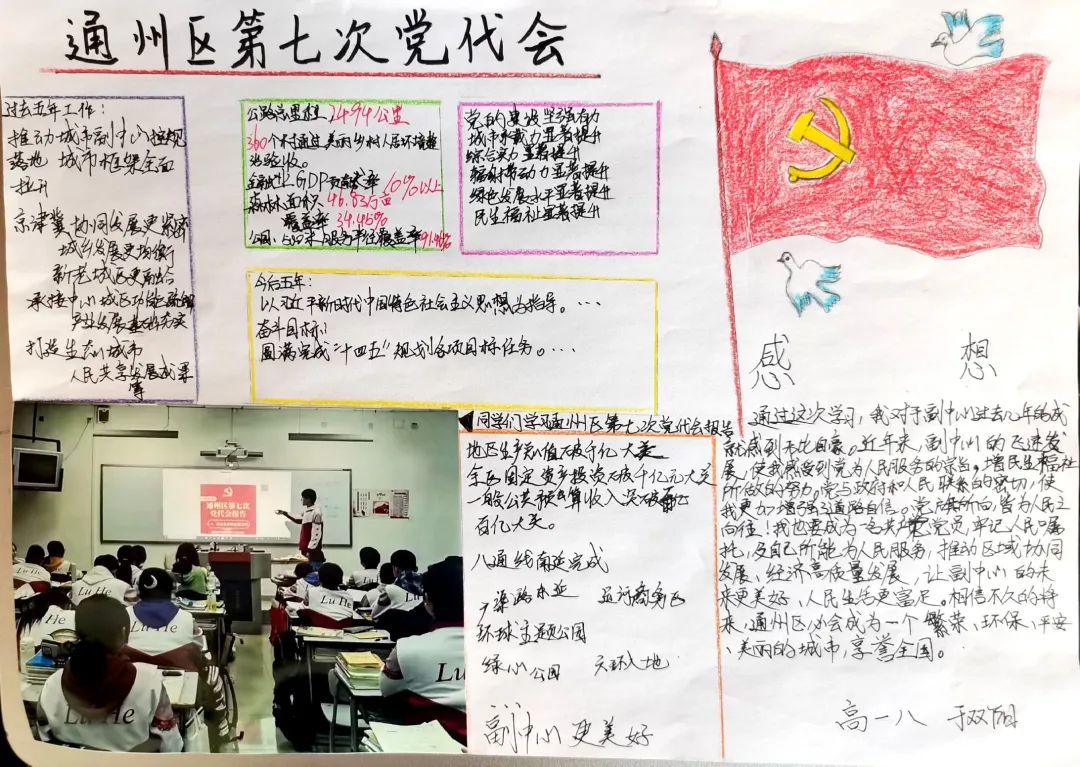 通州区第七次党代会
过去五年工作：
推动城市副中心控规
落地 城市框架全面
拉开
京津冀协同发展更紧密
城乡发展更均衡
新老城区更融合
承接中心城区功能疏解
产业发展基础夯实
打造生态城市
人民共享发展成果
等
公路总里程2494公里
360个村通过美丽乡村人居环境整
治验收。
金融业GDP贡献率10%以上
森林面积46.83万亩
覆盖率34.45%
公园、500米占服务半径覆盖率91.46%
党的建设坚强有力
城市承载力显著提升
综合实力显著提升
辐射带动力显著提升
绿色发展水平显著提升
民生福祉显著提升
今后五年：
以习近平新时代中国特色社会主义思想为指导。...
奋斗目标：
圆满完成“十四五”规划各项目标任务。...
同学们学习通州区第七次党代会报告
通州区第七次
党代会报告
Lu He
Lu He
Lu He
Lu He
Lu He
地区生产总值破千亿大关
全区固定资产投资破千亿元大关
一般公共预算收入次破
百亿大关。
八通线南延完成
广渠路东延 运河商务区
环球主题公园
绿心公园 六环入地
...
副中心更美好
感 想
通过这次学习，我对于副中心过去几年的成
就感到无比自豪。近年来，副中心的飞速发
展，使我感受到党为人民服务的宗旨。增民生福祉
所做的努力。党与政府和人民联系的密切，使
我更力增强了道路自信。党旗所向，皆为人民之
向往！我也要成为一名共产党党员，牢记人民嘱
托，尽自己所能为人民服务，推动区域协同
发展、经济高质量发展，让副中心的未
来更美好、人民生活更富足。相信不久的将
来，通州区必会成为一个繁荣、环保、平安
、美丽的城市，享誉全国。
高一八 于双阳